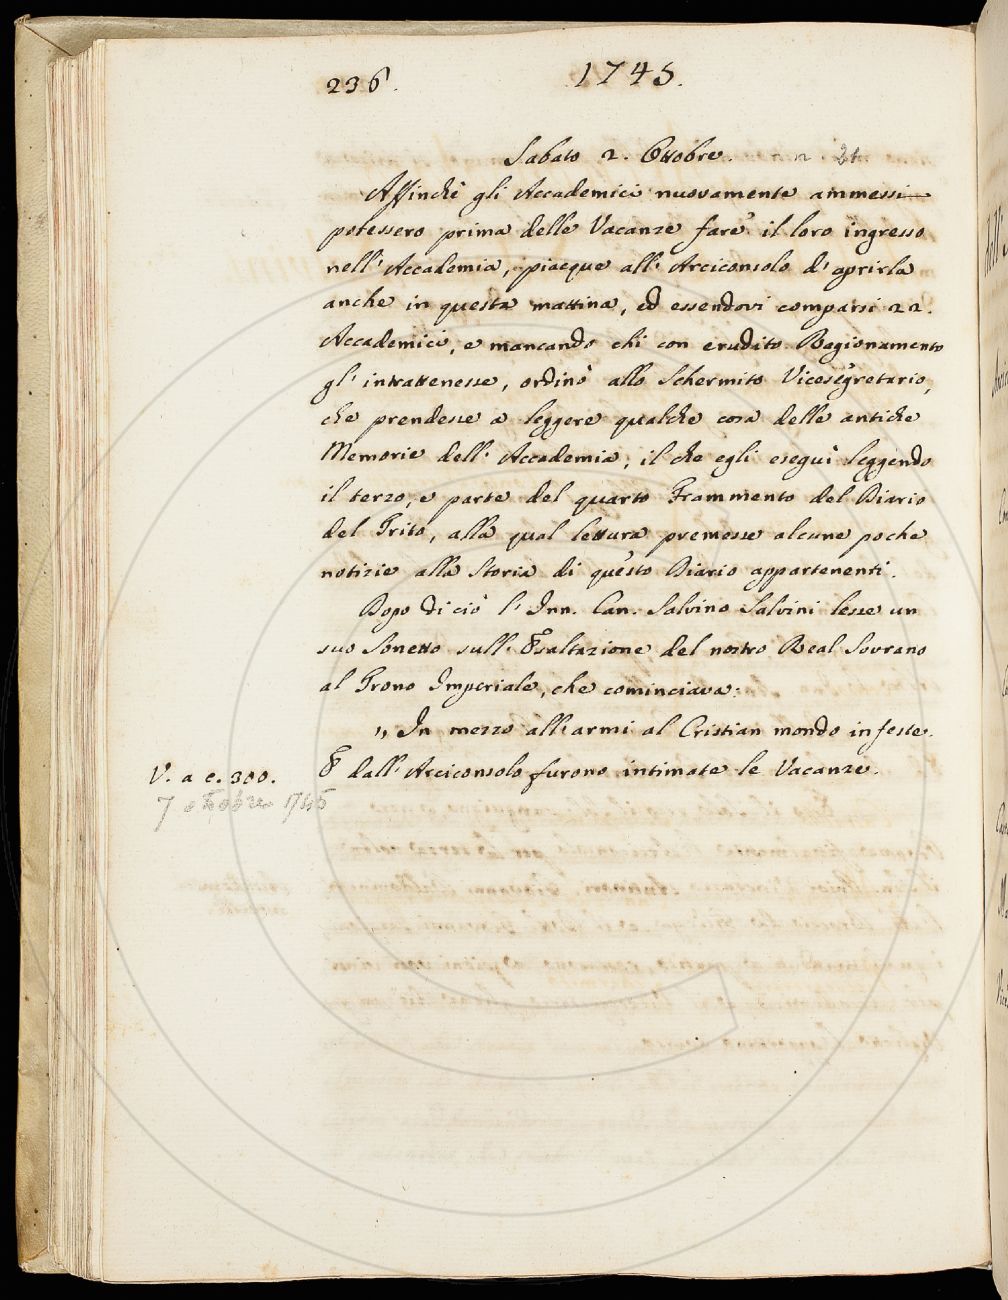 236. 1745.
Sabato 2. Ottobre.
Affinchè gli Accademici nuovamente ammessi
potessero prima delle Vacanze fare il loro ingresso
nell' Accademia, piacque all' Arciconsolo d' aprirla
anche in questa mattina, ed essendovi comparsi 22.
Accademici, e mancando chi con erudito Ragionamento
gl' intrattenesse, ordinò allo Schermito Vicesegretario,
che prendesse a leggere qualche cosa delle antiche
Memorie dell' Accademia; il che egli eseguì leggendo
il terzo, e parte del quarto Frammento del Diario
del Trito, alla qual lettura premesse alcune poche
notizie alla Storia di questo Diario appartenenti.
Dopo di ciò l' Inn. Can. Salvino Salvini lesse un
suo Sonetto sull' Esaltazione del nostro Real Sovrano
al Trono Imperiale, che cominciava:
„ In mezzo all' armi al Cristian mondo infeste.
V. a c. 300. E dall' Arciconsolo furono intimate le Vacanze.
7 ottobre 1745